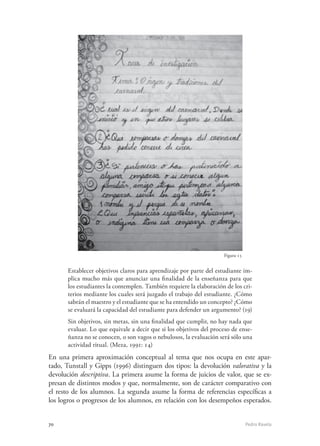 Tarea de investigación
Tema: Origen y tradiciones del
carnaval.
1) ¿Cual es el origen del carnaval, Donde se
inició y en que otros lugares se celebra.
2) ¿Que comparsas o danzas del carnaval
has podido conocer de cerca.
3) Si perteneces o has pertenecido a
alguna comparsa o si conoces algun
familiar, amigo que pertenezca alguna
comparsa
nombre y el porque de su nombre
¿Que influencias españolas, africanas,
o indígena tiene esa comparsa o danza.
Figura 13
Establecer objetivos claros para aprendizaje por parte del estudiante im-
plica mucho más que anunciar una finalidad de la enseñanza para que
los estudiantes la contemplen. También requiere la elaboración de los cri-
terios mediante los cuales será juzgado el trabajo del estudiante. ¿Cómo
sabrán el maestro y el estudiante que se ha entendido un concepto? ¿Cómo
se evaluará la capacidad del estudiante para defender un argumento? (19)
Sin objetivos, sin metas, sin una finalidad que cumplir, no hay nada que
evaluar. Lo que equivale a decir que si los objetivos del proceso de ense-
ñanza no se conocen, o son vagos o nebulosos, la evaluación será sólo una
actividad ritual. (Meza, 1991: 14)
En una primera aproximación conceptual al tema que nos ocupa en este apar-
tado, Tunstall y Gipps (1996) distinguen dos tipos: la devolución valorativa y la
devolución descriptiva. La primera asume la forma de juicios de valor, que se ex-
presan de distintos modos y que, normalmente, son de carácter comparativo con
el resto de los alumnos. La segunda asume la forma de referencias específicas a
los logros o progresos de los alumnos, en relación con los desempeños esperados.
70
Pedro Ravela